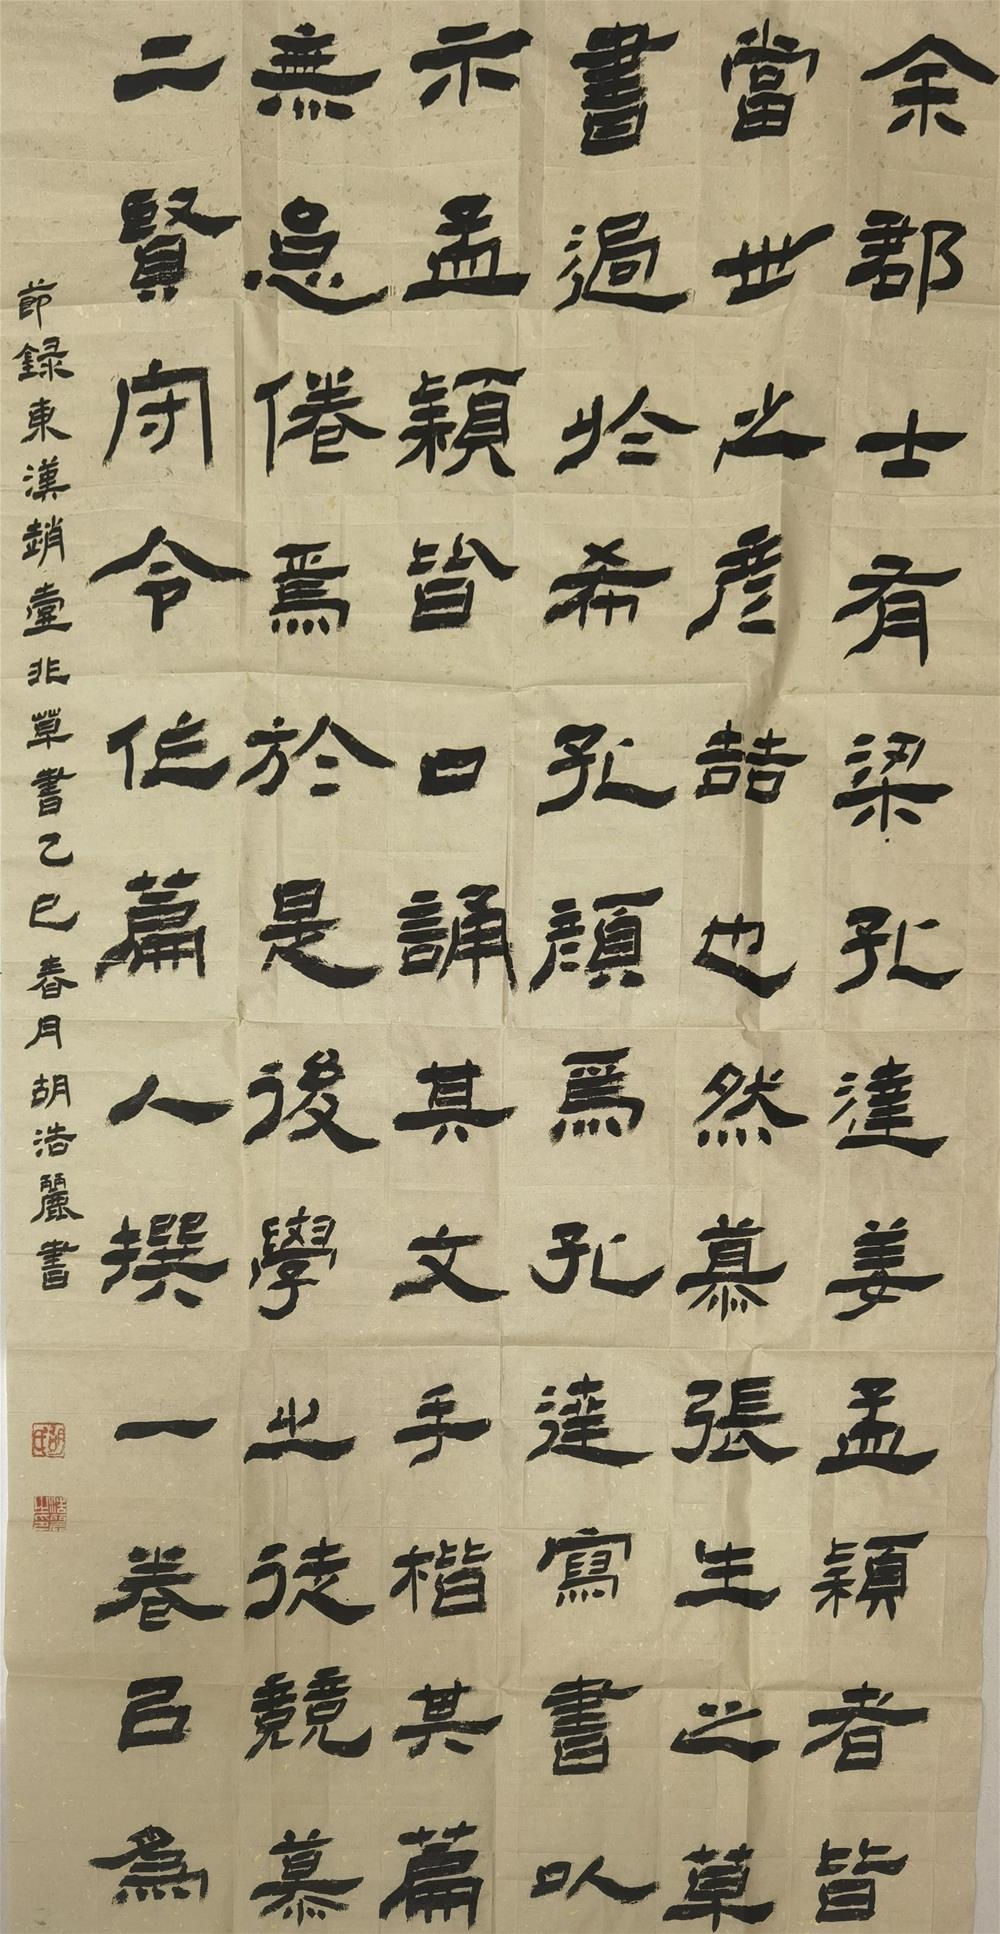 余郡士有梁孔達姜孟穎者皆
當世之彥喆也然慕張生之草
書過於希孔顏焉孔達寫書以
示孟穎皆口誦其文手楷其篇
無怠倦焉於是後學之徒競慕
二賢守令作篇人撰一卷以為
節錄東漢趙壹非草書乙巳春月胡浩麗書
胡氏
浩麗之印